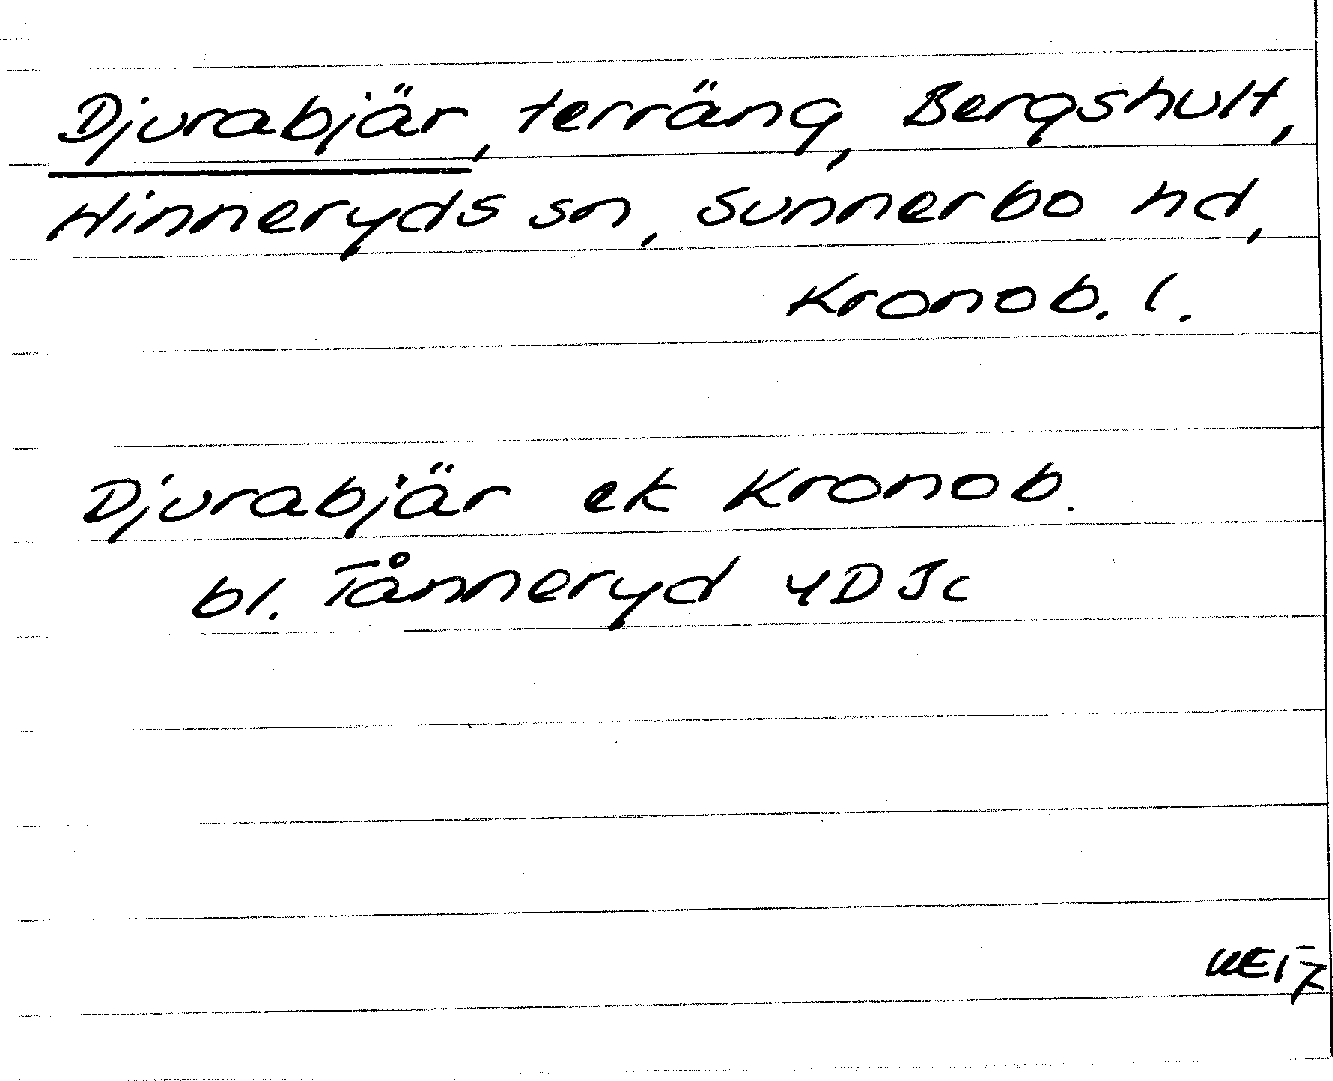 Djurabjär, terräng, Bergshult,
Hinneryds sn, Sunnerbo hd,
Kronob. l.
Djurabjär ek Kronob.
bl. Tånneryd 4D Jc